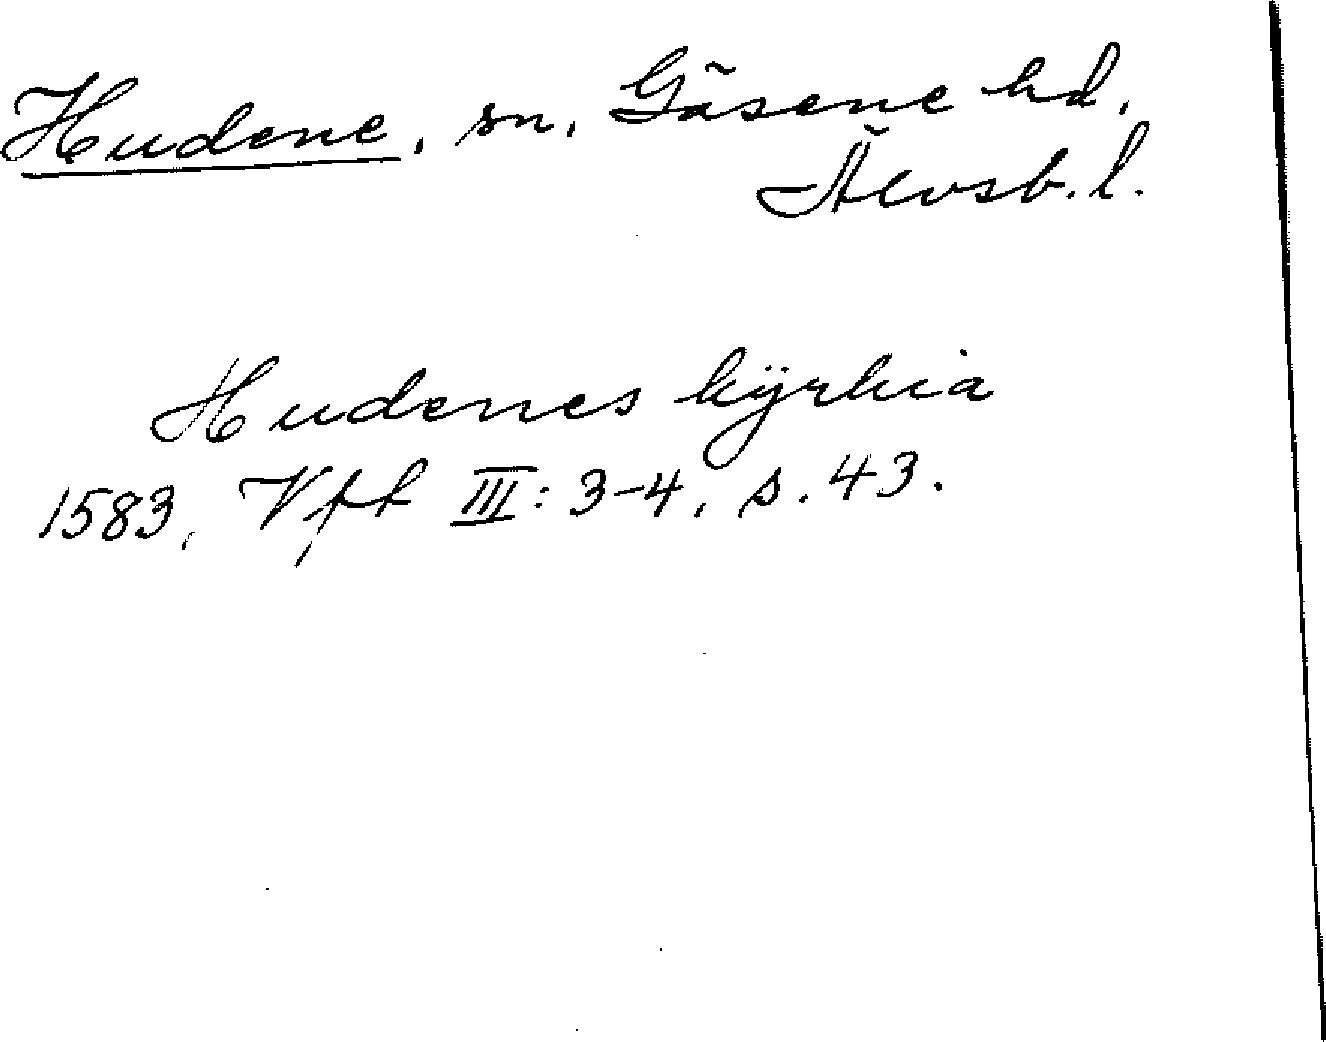 Hudene, sn, Gäsene hd,
Älvsb. l.
Hudenes kÿrkia
1583, Vft III: 3-4, s. 43.